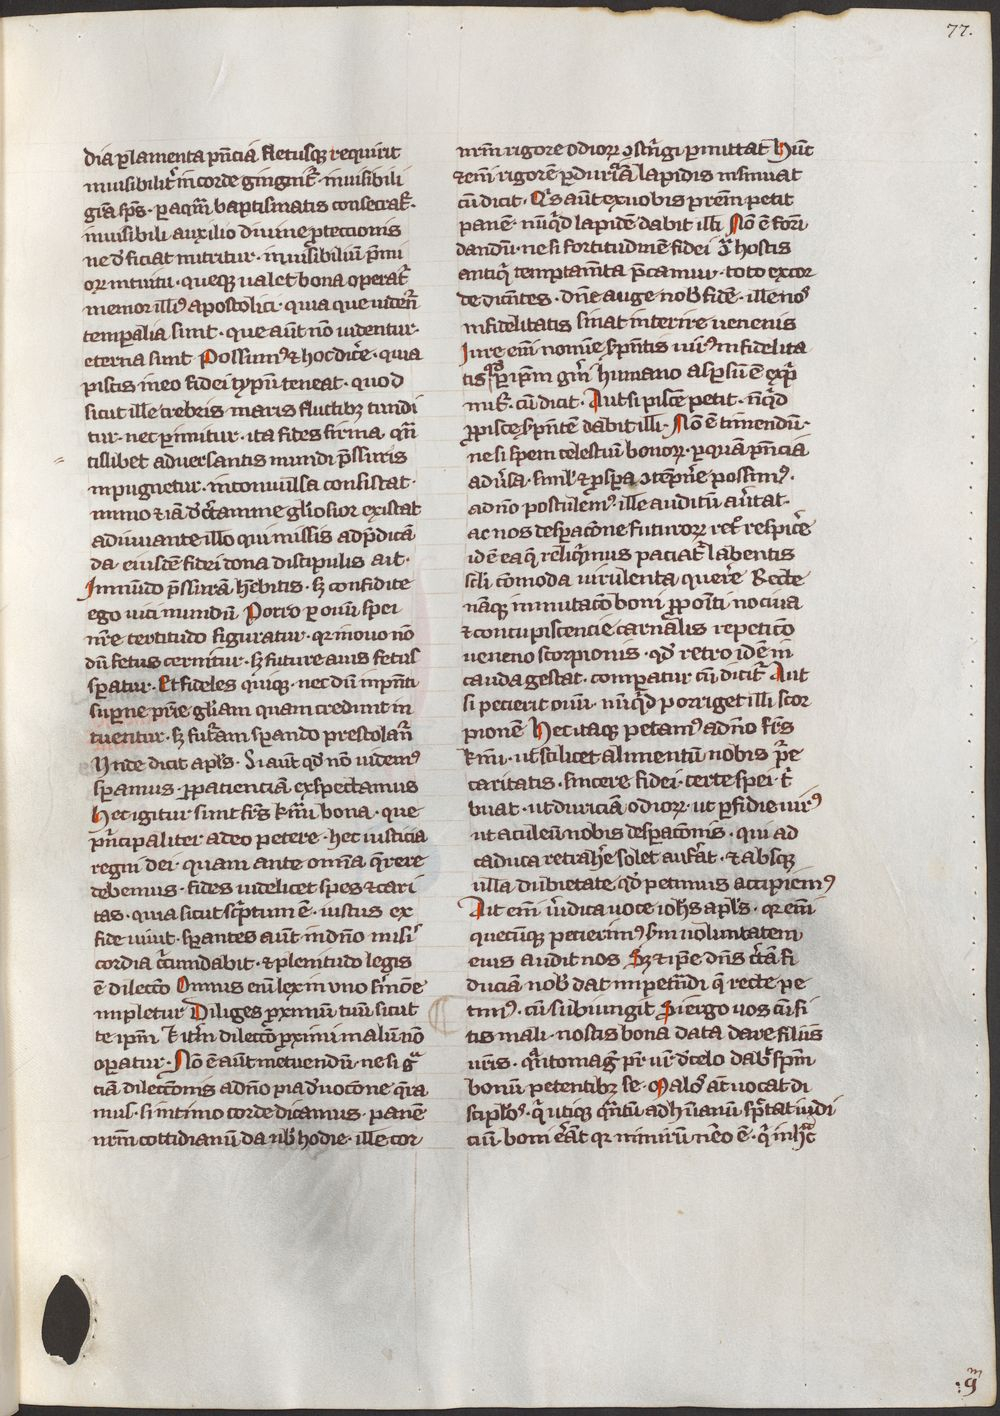 77.
dia ꝑ lamenta pn̄cia fletusqꝫ requirit
inuisibilit᷑ in corde gingnit᷑ · inuisibili
grā sp̄s · ꝑ aqm̄ baptismatis consecrat᷑ ·
inuisibili auxilio diuine ꝓtectionis
ne d̓ficiat nutritur · inuisibiliū p̄mi
oꝝ intuitu · queqꝫ ualet bona operat᷑
memor illiꝰ apostolici · quia que uident᷑
temꝑalia sunt · que aūt nō uidentur ·
eterna sunt Possumꝰ ⁊ hoc dic̓e · quia
piscis in eo fidei typū teneat · quod
sicut ille crebris maris fluctibꝫ tundi
tur · nec ꝑimitur · ita fides firma qm̄
tislibet aduersantis mundi p̄ssuris
inpugnetur · inconuulsa consistat ·
immo ⁊ iā d̓ c̓tamine gl̓iosior existat
adiuuante illo qui missis ad p̄dicā
da eiusdē fidei dona discipulis ait ·
In mūdo p̄ssurā hēbitis · sꝫ confidite
ego uici mundū Porro ꝑ ouū spei
nr̄e certitudo figuratur · qꝛ in ouo nō
dū fetus cernitur · sꝫ future auis fetus
sꝑatur · Et fideles quiqꝫ · nec dū inpn̄ti
suꝑne pr̄ie gl̓iam quam credunt in
tuentur · sꝫ fut᷑am sꝑando prestolant᷑
Unde dicit apl̓s · Si aūt qd̓ nō uidemꝰ
sꝑamus · ꝑ pacienciam exspectamus
Hec igitur sunt fr̄s kr̄mi bona · que
pⁱncipaliter a deo petere · hec iusticia
regni dei · quam ante om̄a q̄rere
debemus · fides uidelicet spes ⁊ cari
tas · quia sicut sc̓ptum ē · iustus ex
fide uiuit · sꝑantes aūt in dn̄o misi
cordia c̓cumdabit · ⁊ plenitudo legis
ē dilectō Omnis enī lex in uno s̓mōe
impletur Diliges ꝓximū tuū sicut
te ipm̄ ⁊ itm̄ dilectō ꝓximi malū nō
oꝑatur · Nō ē aūt metuendū · ne si gᷓ
ciā dilectōnis a dn̄o pia d̓uocōne qᷓra
mus · si intimo corde dicamus · panē
nr̄m cottidianū da nob̓ hodie · ille cor
nr̄m rigore odioꝝ ꝯstⁱngi ꝑmittat Hūc
⁊ enī rigorē ꝑ duriciā lapidis insinuat
cū dicit · Qⁱs aūt ex uobis pr̄em petit
panē · nūqⁱd lapidē dabit illi Nō ē fori
dandū · ne si fortitudinē fidei 9ᷓ hostis
antiqⁱ temptam̄ta p̄camur · toto ex cor
de dicn̄tes · dn̄e auge nob̓ fidē · ille noꝰ
infidelitatis sinat interire uenenis
Iure enī nomīe s̓pn̄tis uirꝰ infidelita
tis qd̓ ꝑ ipm̄ gn̄i humano asꝑsū ē expⁱ
mit᷑ · cū dicit · Aut si piscē petit · nūqⁱd
ꝓ pisce s̓pn̄tē dabit illi · Nō ē timendū ·
ne si spem celestiū bonoꝝ · ꝑ quā pn̄cia
adūsa · simul ⁊ ꝓsꝑa ꝯtēpn̓e possimꝰ ·
a dn̄o postulemꝰ · ille auditū au̓tat ·
ac nos desꝑacōne futuroꝝ ret᷑ respic̓e
idē ea q̄ relⁱqⁱmus paciat᷑ labentis
scl̓i cōmoda uirulenta quere̓ Recte
nāqꝫ inmutacō boni ꝓpoīti nociua
⁊ concupiscencie carnalis repeticō
ueneno scorpionis · qd̓ retro idē in
cauda gestat · comꝑatur cū dicit᷑ Aut
si pecierit ouū · nūqⁱd porriget illi scor
pionē Hec itaqꝫ petamꝰ a dn̄o fr̄s
kr̄mi · ut scilicet alimentū nobis p̄ie
caritatis · sincere fidei · certe spei tⁱ
buat · ut duriciā odioꝝ · ut ꝑfidie uirꝰ
ut aculeū nobis desꝑacōnis · qui ad
caduca retrah̓e solet auf̓at · ⁊ absqꝫ
ulla dubietate qd̓ petimus accipiemꝰ
Ait enī ūidica uoce ioh̓s apl̓s · qꝛ enī
quecūqꝫ pecierimꝰ s̓m uoluntatem
eius audit nos Sꝫ ⁊ ip̄e dn̄s c̓tā fi
duciā nob̓ dat inpetn̄di q̄ recte pe
timꝰ · cū subiungit Si ergo uos cū si
tis mali · nostis bona data dare filiis
ur̄is · qn̄to magꝭ pr̄ ur̄ d̓ celo dab̓ sp̄m
bonū petentibꝫ se · Malos aūt uocat di
scipl̓os · qⁱ utiqꝫ qn̄tū ad hūanū spc̓tat iudi
ciū · boni er̄ant qꝛ nimirū nēo ē · qⁱ in hᷓc